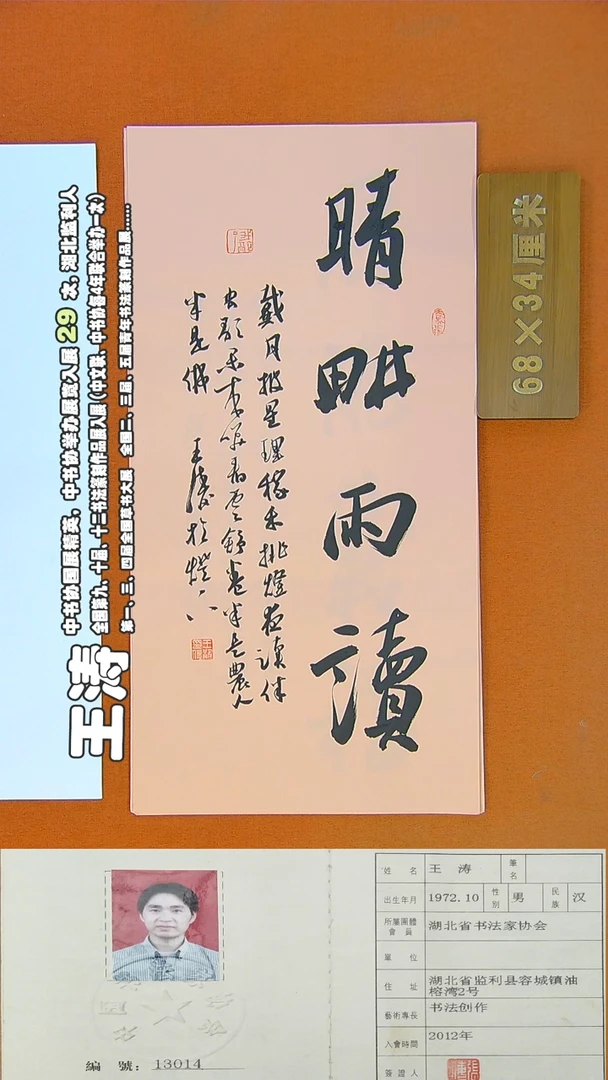 晴畊雨讀
戴月披星理稼禾挑燈夜讀伴
虫歌看雲舒卷半是農人
半是佛 王濤於燈下
68×34厘米
王涛
中书协国展精英,中书协举办展赛入展29次,湖北监利人
全国第九、十届、十二书法篆刻作品展入展(中文联、中书协每4年联合举办一次)
第一、三、四届全国草书大展 全国二、三届,五届青年书法篆刻作品展......
編 號:13014
姓 名 王 涛 筆名
出生年月 1972.10 性別 男 民族 汉
所屬團體會員 湖北省书法家协会
單 位
住 址 湖北省监利县容城镇油
榕湾2号
藝術專長 书法创作
入會時間 2012年
簽證人